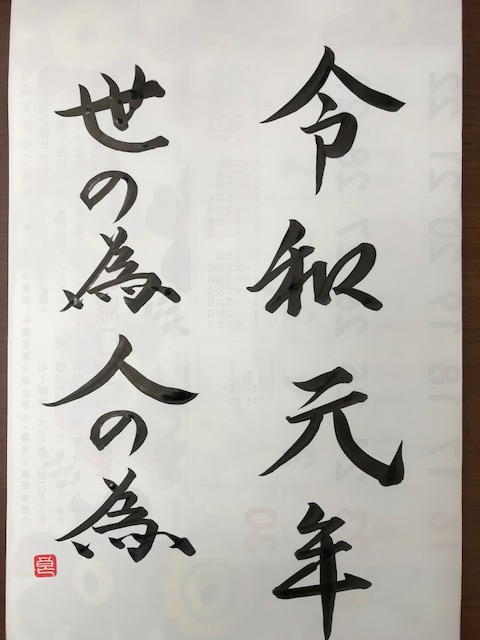 令和元年
世の為人の為